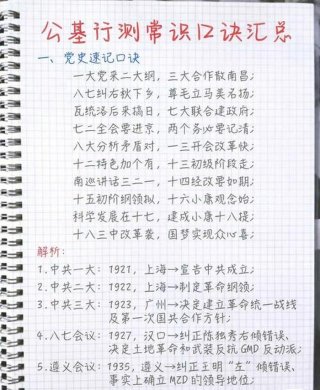 公基行测常识口诀汇总
一、党史速记口诀
一大党来二大纲，三大合作散南昌；
八七纠右秋下乡，尊毛立马美名扬；
瓦统洛后来搞日，七大联合建政府；
七二全会要进京，两个务必要记清；
八大分析矛盾对，一三开会改革快；
十二特色加个有，十三初级阶段走；
南巡讲话三二一，十四经改要如期；
十五初邓纲领拟，十六小康观念始；
科学发展在十七，建成小康十八提；
十八三中改革袭，国梦实现众心喜；
解析：
1.中共一大：1921，上海→宣告中共成立；
2.中共二大：1922，上海→制定革命纲领；
3.中共三大：1923，广州→决定建立革命统一战线
及第一次国共合作方针；
4.八七会议：1927，汉口→纠正陈独秀右倾错误、
决定土地革命和武装反抗GMD反动派；
5.遵义会议：1935，遵义→纠正王明“左”倾错误、
事实上确立MZD的领导地位；